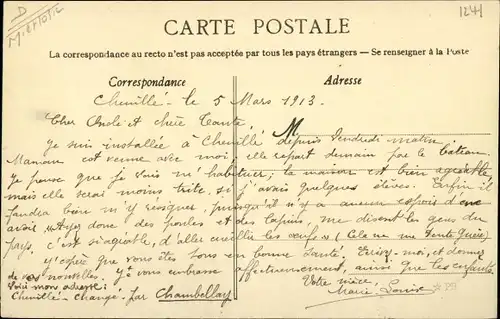 D
1241
CARTE POSTALE
La correspondance au recto n'est pas acceptée par tous les pays étrangers — Se renseigner à la Poste
Correspondance
Adresse
Chenillé - le 5 Mars 1913.
Cher Oncle et chère Tante.
M
je suis installée à Chenillé depuis Vendredi matin
Maman est venue avec moi; elle repart demain par le bateau.
Je pense que je vais m'habituer; la maison est bien agréable,
mais elle serai moins triste si j'avais quelques élèves. Enfin il
faudra bien m'y résigner, puisqu'il n'y a aucun espoir d'en
avoir. donc des poules et des lapins, me disent les gens du
pays, c'est si agréable, d'aller cueillir les œufs (Cela ne me tente guère)
J'espère que vous êtes tous en bonne santé. Ecrivez-moi, et donnez
de vos nouvelles. Je vous embrasse affectueusement, ainsi que les enfants
Voici mon adresse: Votre nièce,
Chenillé-Changé. par Chambellay Marie Louise